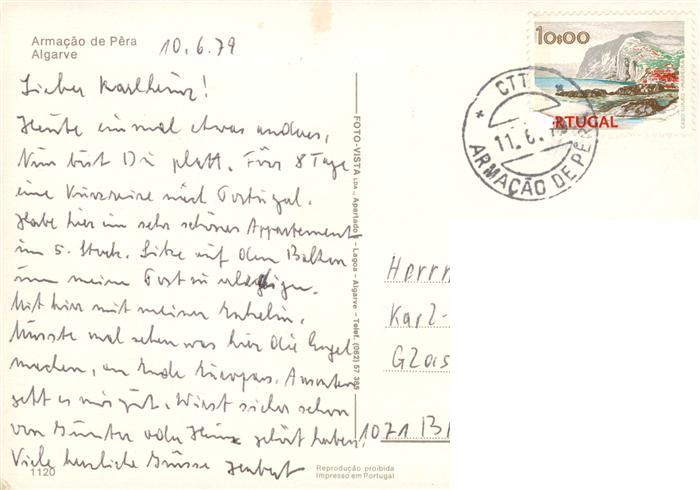 Armação de Pêra
Algarve
10.6.79
Lieber Karlheinz!
Heute einmal etwas anderes,
Nun bist Du platt. Für 8 Tage
eine Kurzreise nach Portugal.
Habe hier im sehr schönes Appartement
im 5. Stock. Sitze auf dem Balkon
um meine Post zu erledigen.
Mit hier mit meiner Enkelin,
Müsste mal sehen was hier die Engel
machen, am Ende Europas. Ansonsten
geht es mir gut. Wirst sicher schon
von Günter oder Heinz gehört haben,
Viele herzliche Grüsse Herbert
1120
Reprodução proibida
Impresso em Portugal
FOTO-VISTA LDA., Apartado 1 - Lagoa - Algarve - Telef. (082) 57 385
10$00
RTUGAL
CTT
11.6.
ARMAÇÃO DE PÊR
Herrn
Karl-
Glas
1071 B